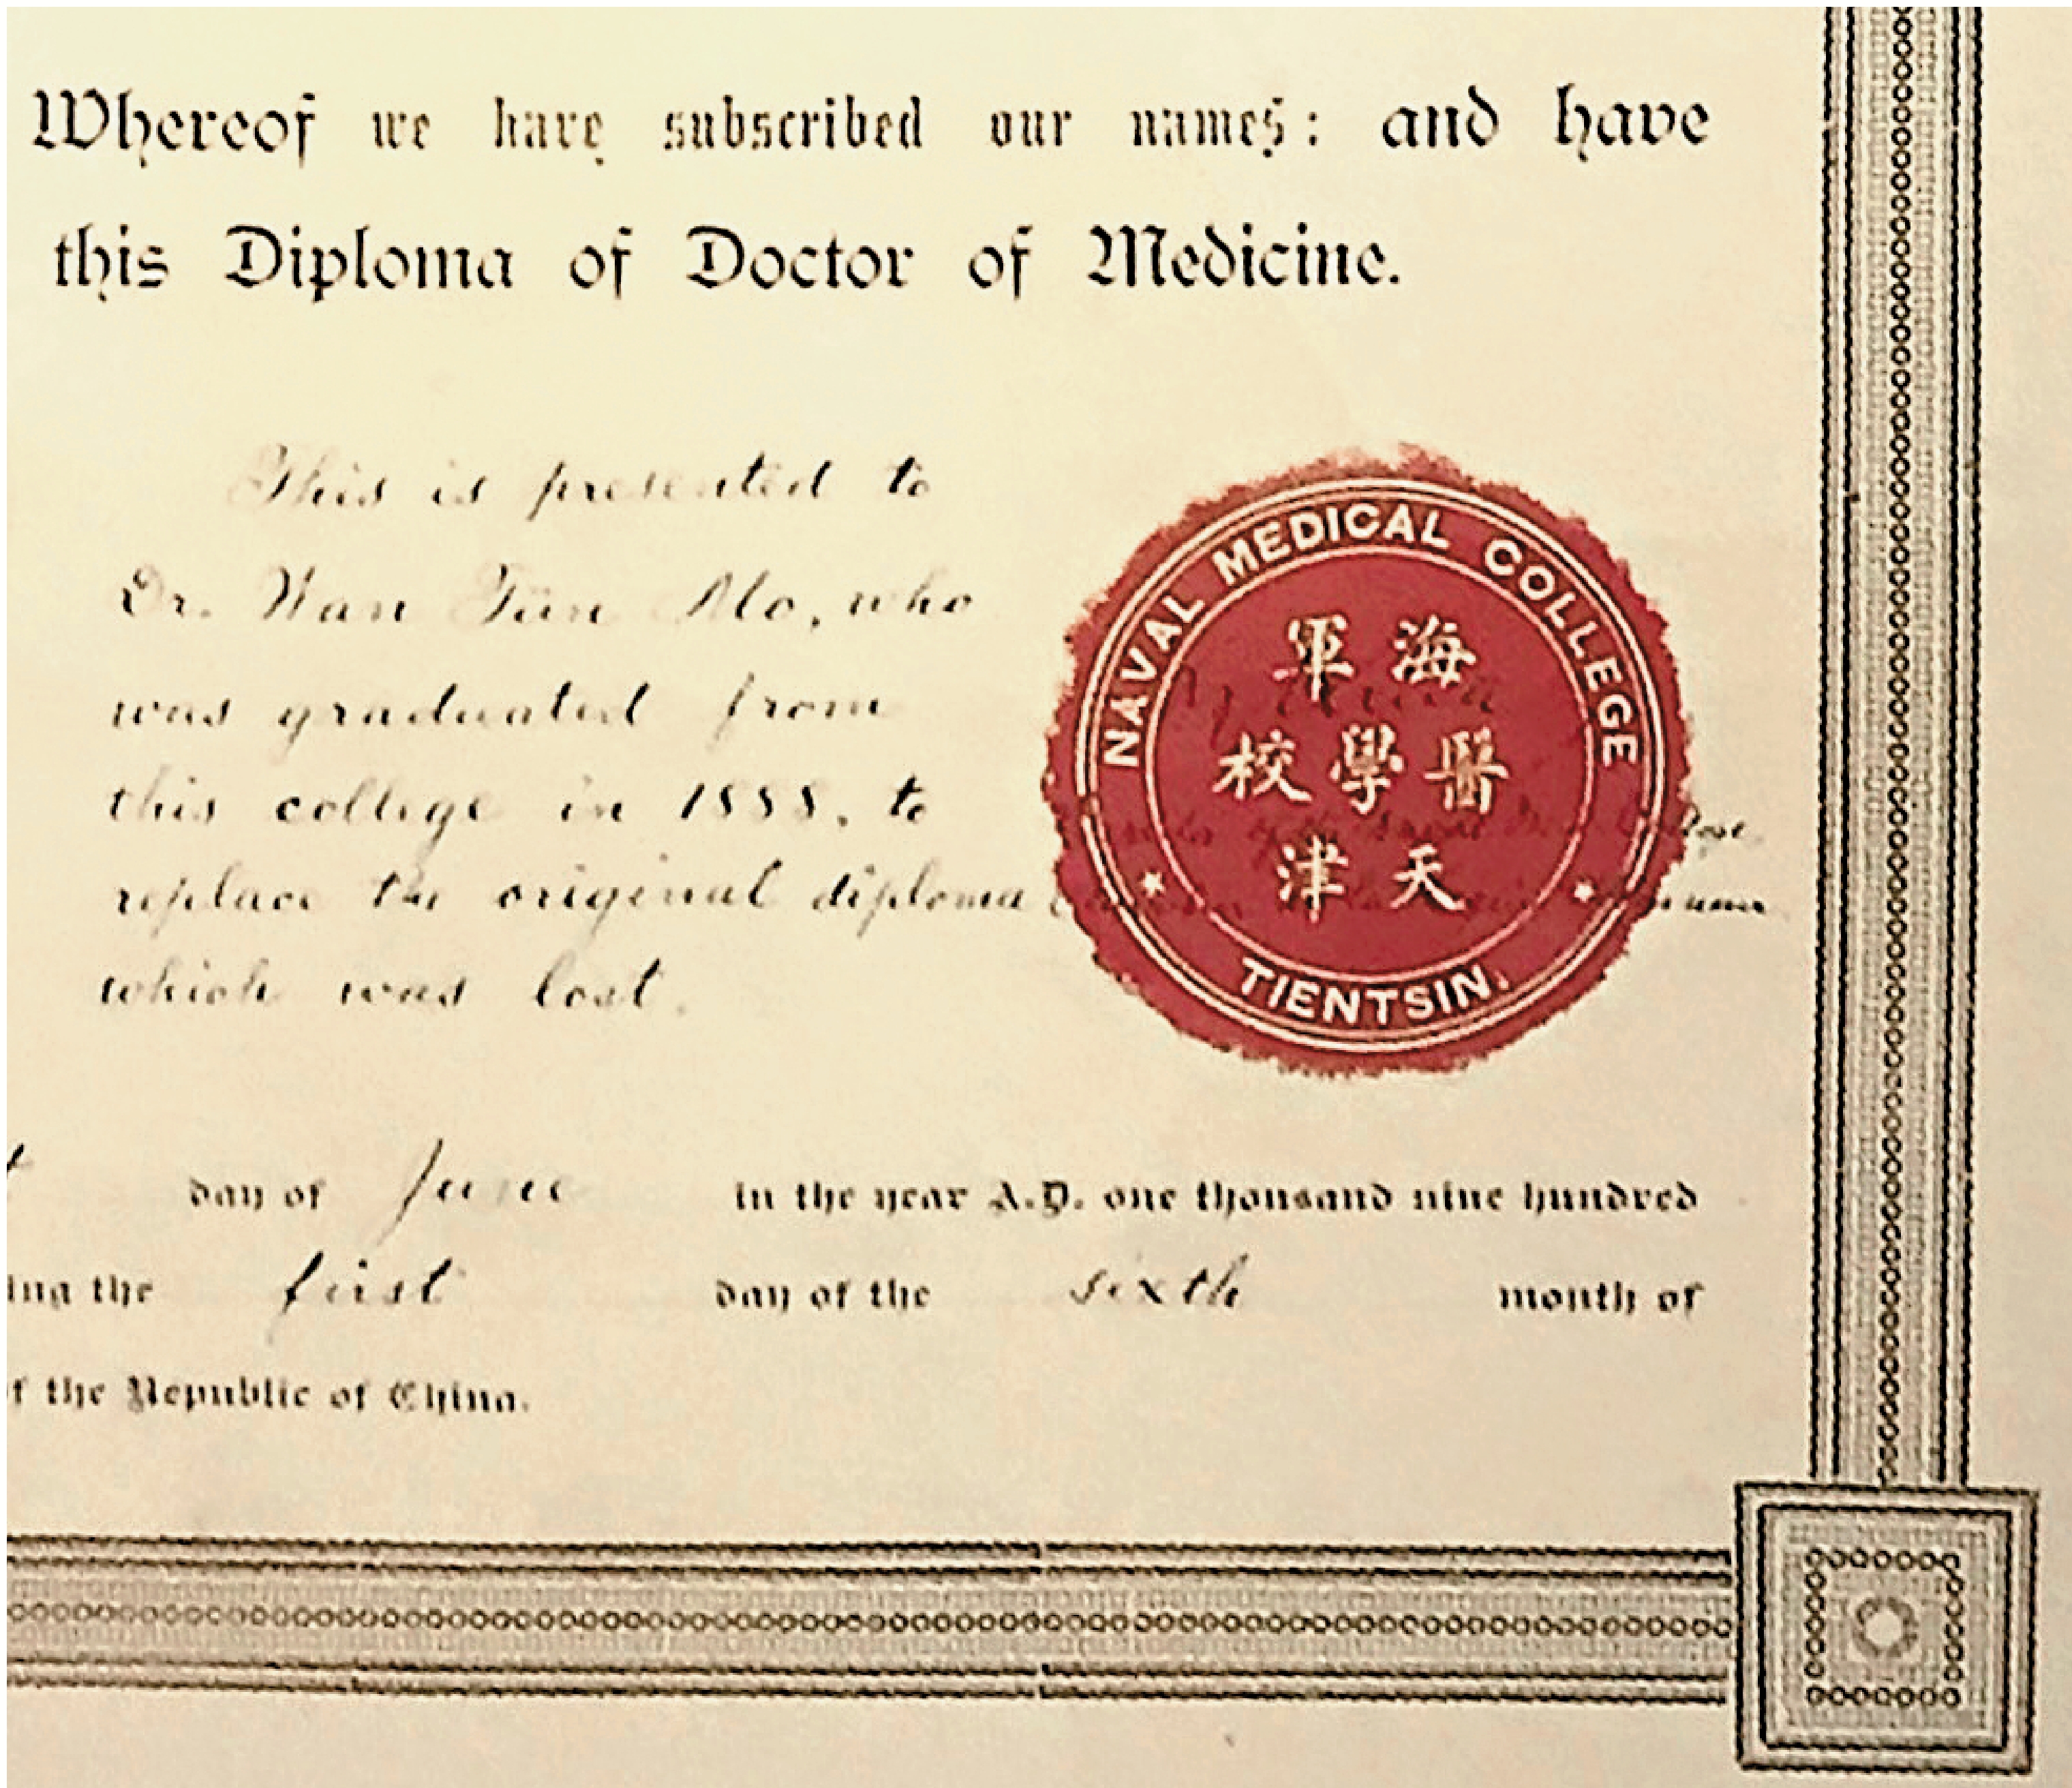 Whereof we have subscribed our names: and have
this Diploma of Doctor of Medicine.
This is presented to
Dr. Wan Tün Mo, who
was graduated from
this college in 1888, to
replace the original diploma
which was lost.
NAVAL MEDICAL COLLEGE
軍 海
校 學 醫
津 天
TIENTSIN.
day of June in the year A.D. one thousand nine hundred
ing the first day of the sixth month of
f the Republic of China.